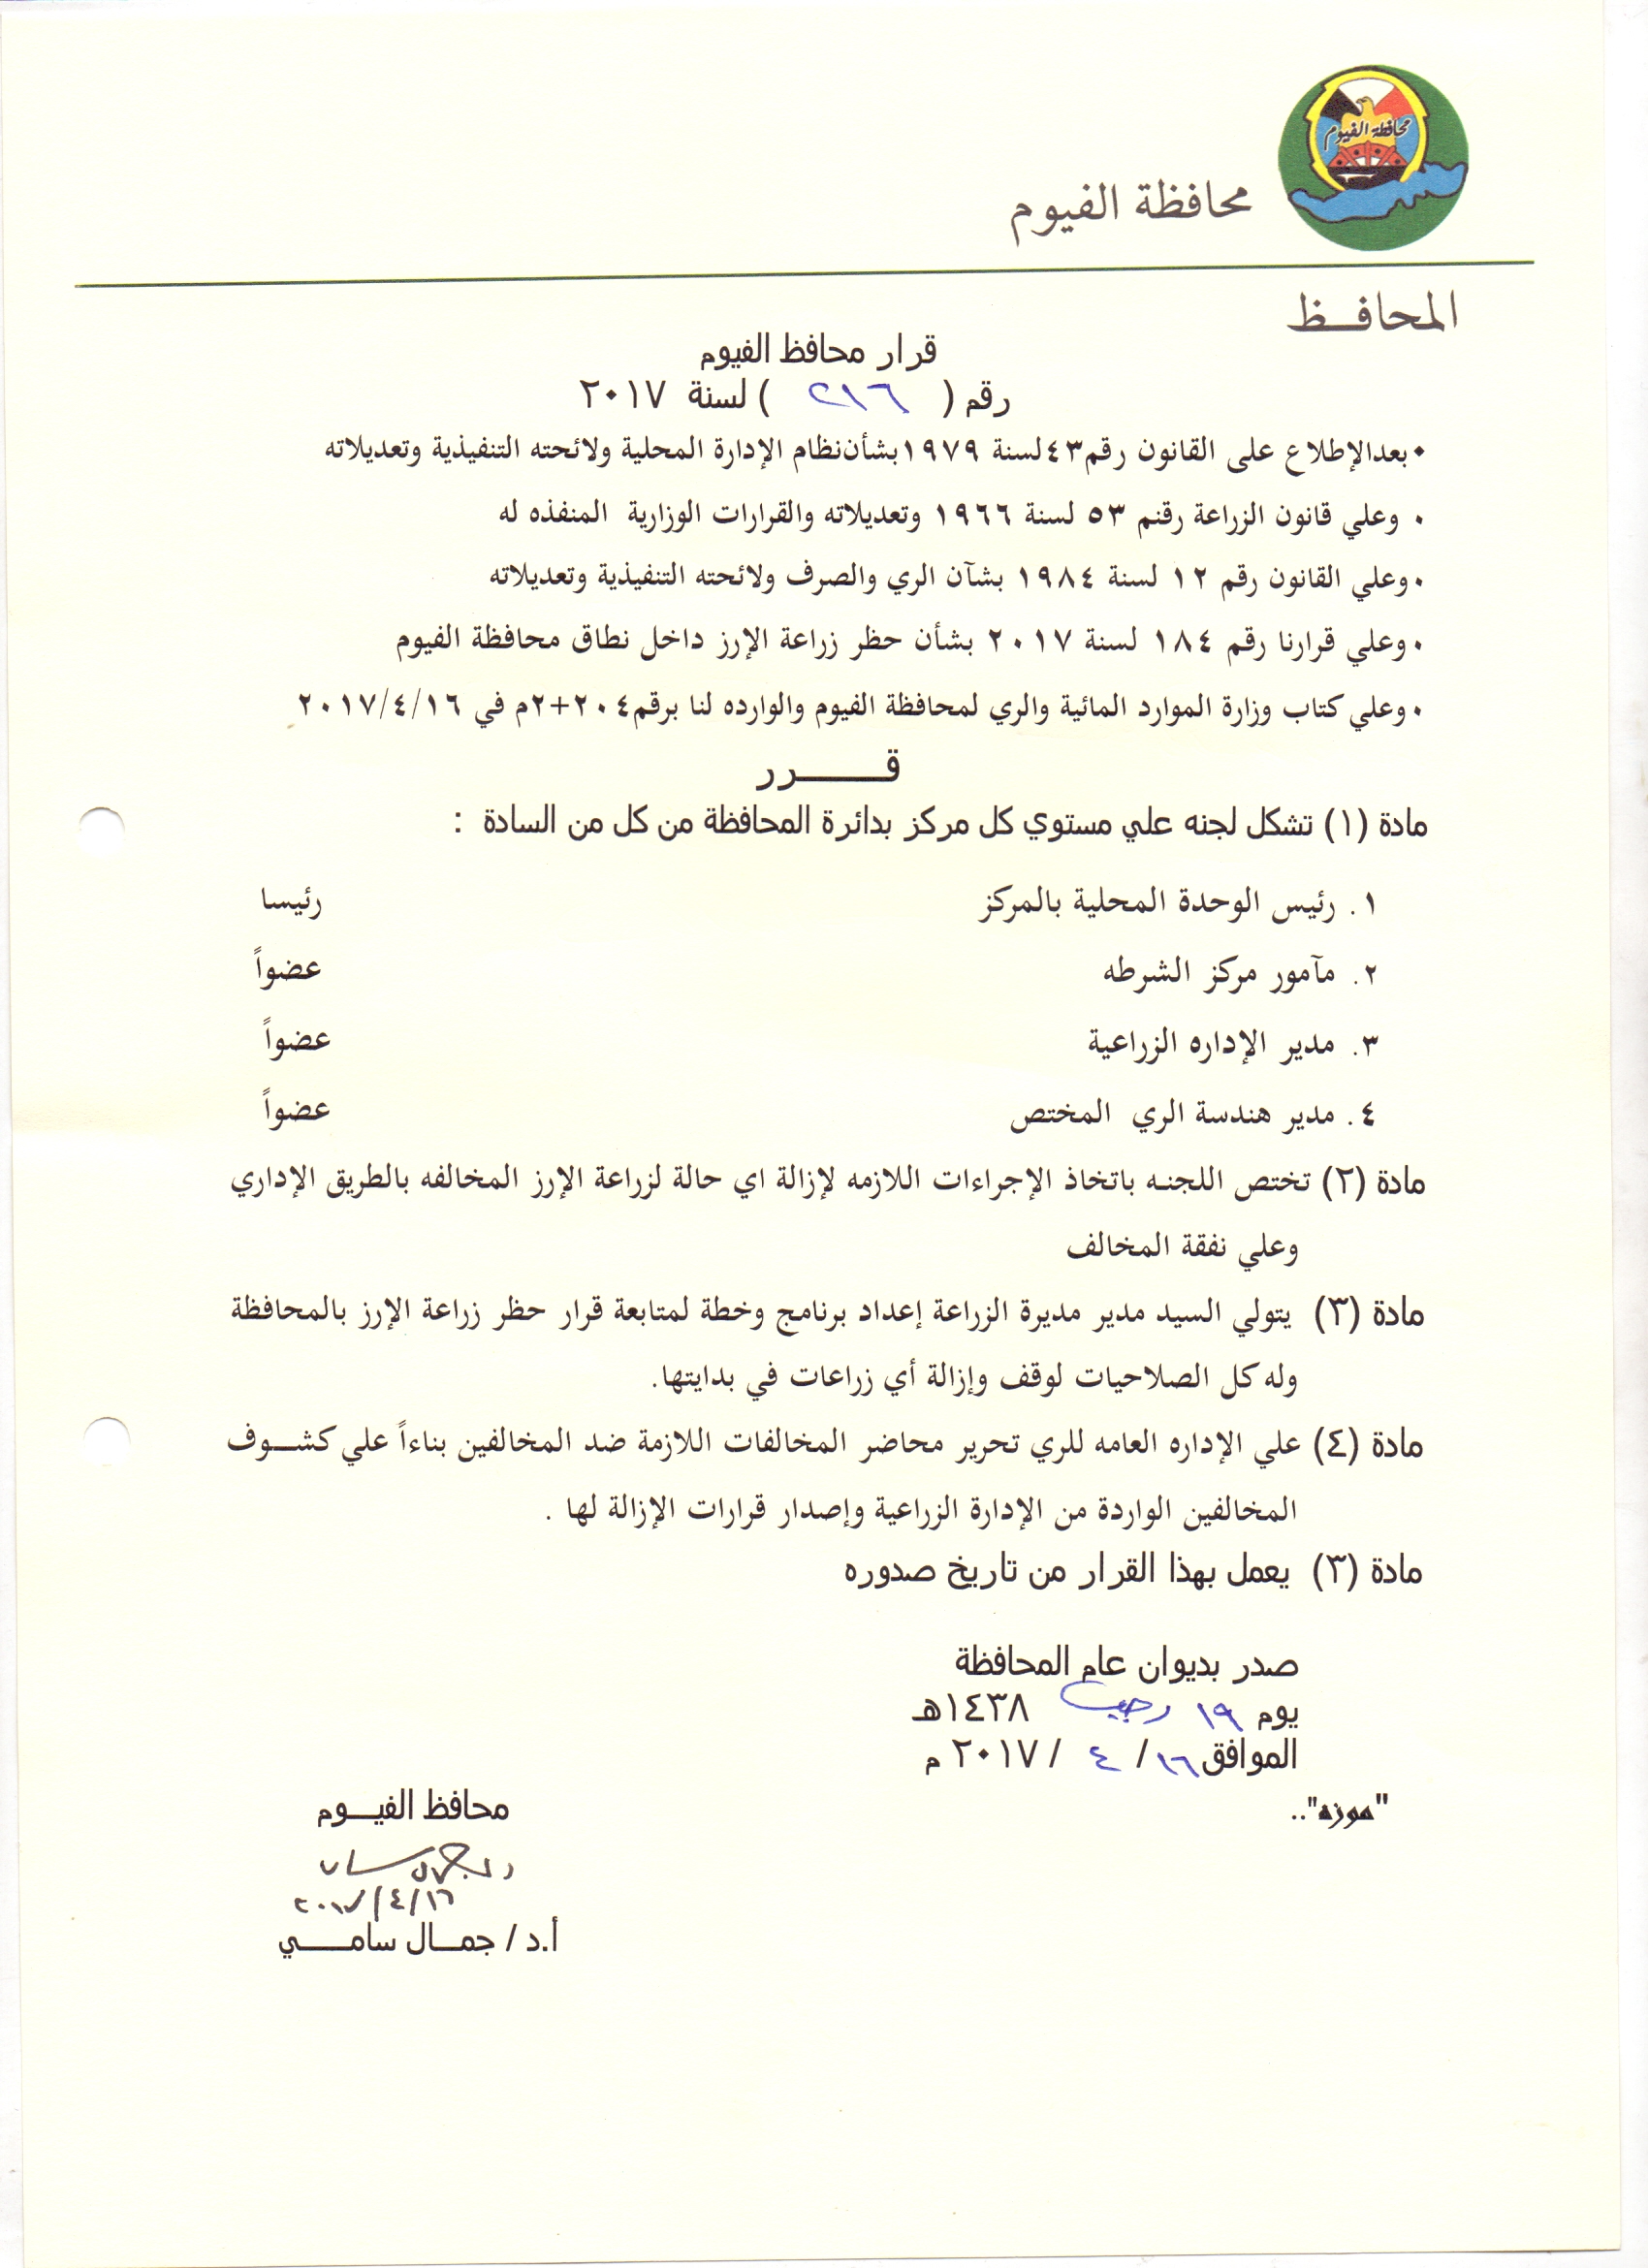 محافظة الفيوم
محافظة الفيوم
المحافـــظ
قرار محافظ الفيوم
رقم ( ٢١٦ ) لسنة ٢٠١٧
• بعدالإطلاع على القانون رقم٤٣لسنة ١٩٧٩بشأن نظام الإدارة المحلية ولائحته التنفيذية وتعديلاته
• وعلي قانون الزراعة رقنم ٥٣ لسنة ١٩٦٦ وتعديلاته والقرارات الوزارية المنفذه له
• وعلي القانون رقم ١٢ لسنة ١٩٨٤ بشآن الري والصرف ولائحته التنفيذية وتعديلاته
• وعلي قرارنا رقم ١٨٤ لسنة ٢٠١٧ بشأن حظر زراعة الإرز داخل نطاق محافظة الفيوم
• وعلي كتاب وزارة الموارد المائية والري لمحافظة الفيوم والوارده لنا برقم٢٠٤+٢م في ٢٠١٧/٤/١٦
قــــــرر
مادة (١) تشكل لجنه علي مستوي كل مركز بدائرة المحافظة من كل من السادة :
١. رئيس الوحدة المحلية بالمركز رئيسا
٢. مآمور مركز الشرطه عضواً
٣. مدير الإداره الزراعية عضواً
٤. مدير هندسة الري المختص عضواً
مادة (٢) تختص اللجنه باتخاذ الإجراءات اللازمه لإزالة اي حالة لزراعة الإرز المخالفه بالطريق الإداري
وعلي نفقة المخالف
مادة (٣) يتولي السيد مدير مديرة الزراعة إعداد برنامج وخطة لمتابعة قرار حظر زراعة الإرز بالمحافظة
وله كل الصلاحيات لوقف وإزالة أي زراعات في بدايتها.
مادة (٤) علي الإداره العامه للري تحرير محاضر المخالفات اللازمة ضد المخالفين بناءاً علي كشـــوف
المخالفين الواردة من الإدارة الزراعية وإصدار قرارات الإزالة لها .
مادة (٣) يعمل بهذا القرار من تاريخ صدوره
صدر بديوان عام المحافظة
يوم ١٩ رجب ١٤٣٨هـ
الموافق ١٦ / ٤ / ٢٠١٧ م
"موزه"..
محافظ الفيـــوم
٢٠١٧/٤/١٦
أ.د / جمــال سامـــــي